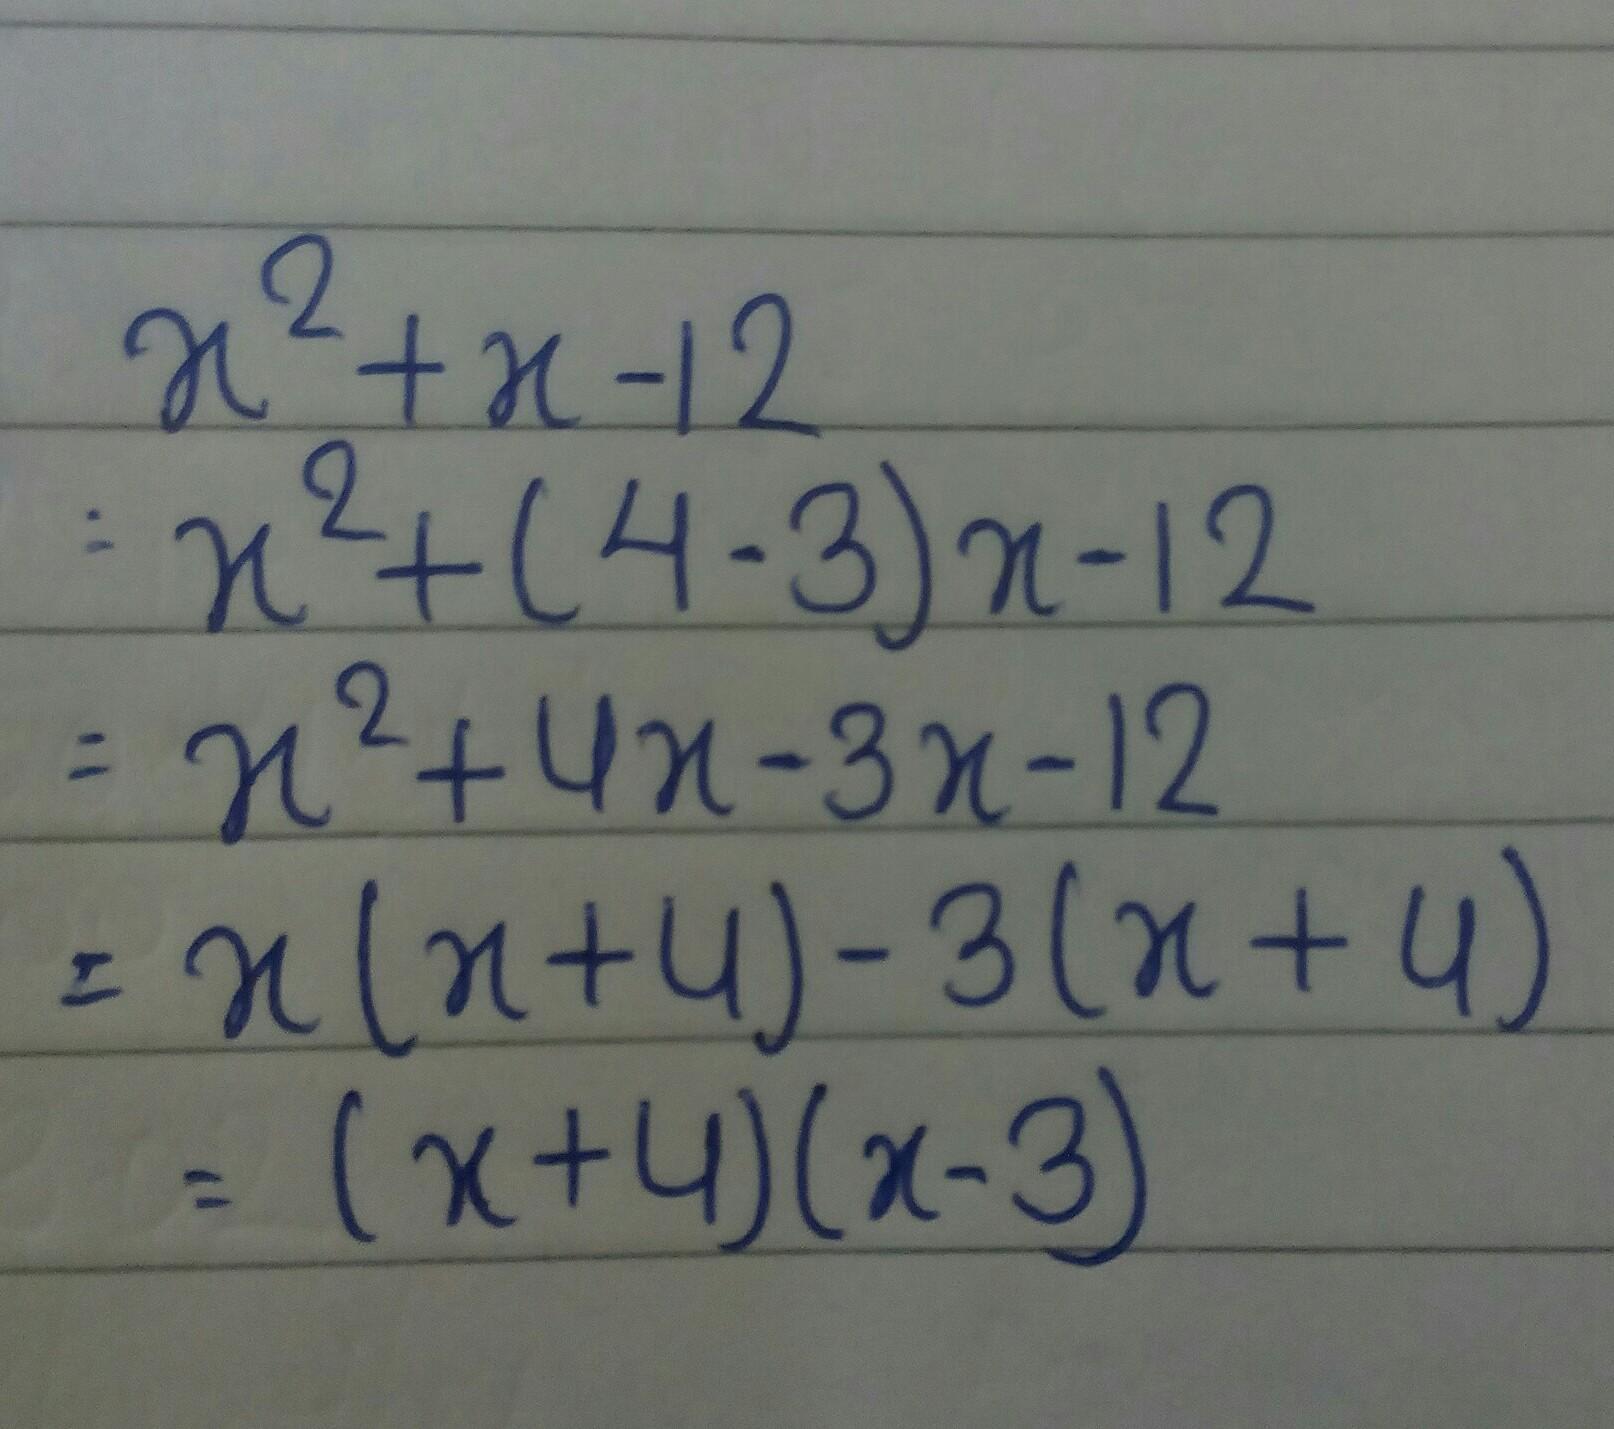 x² + x - 12
= x² + (4 - 3)x - 12
= x² + 4x - 3x - 12
= x(x + 4) - 3(x + 4)
= (x + 4)(x - 3)